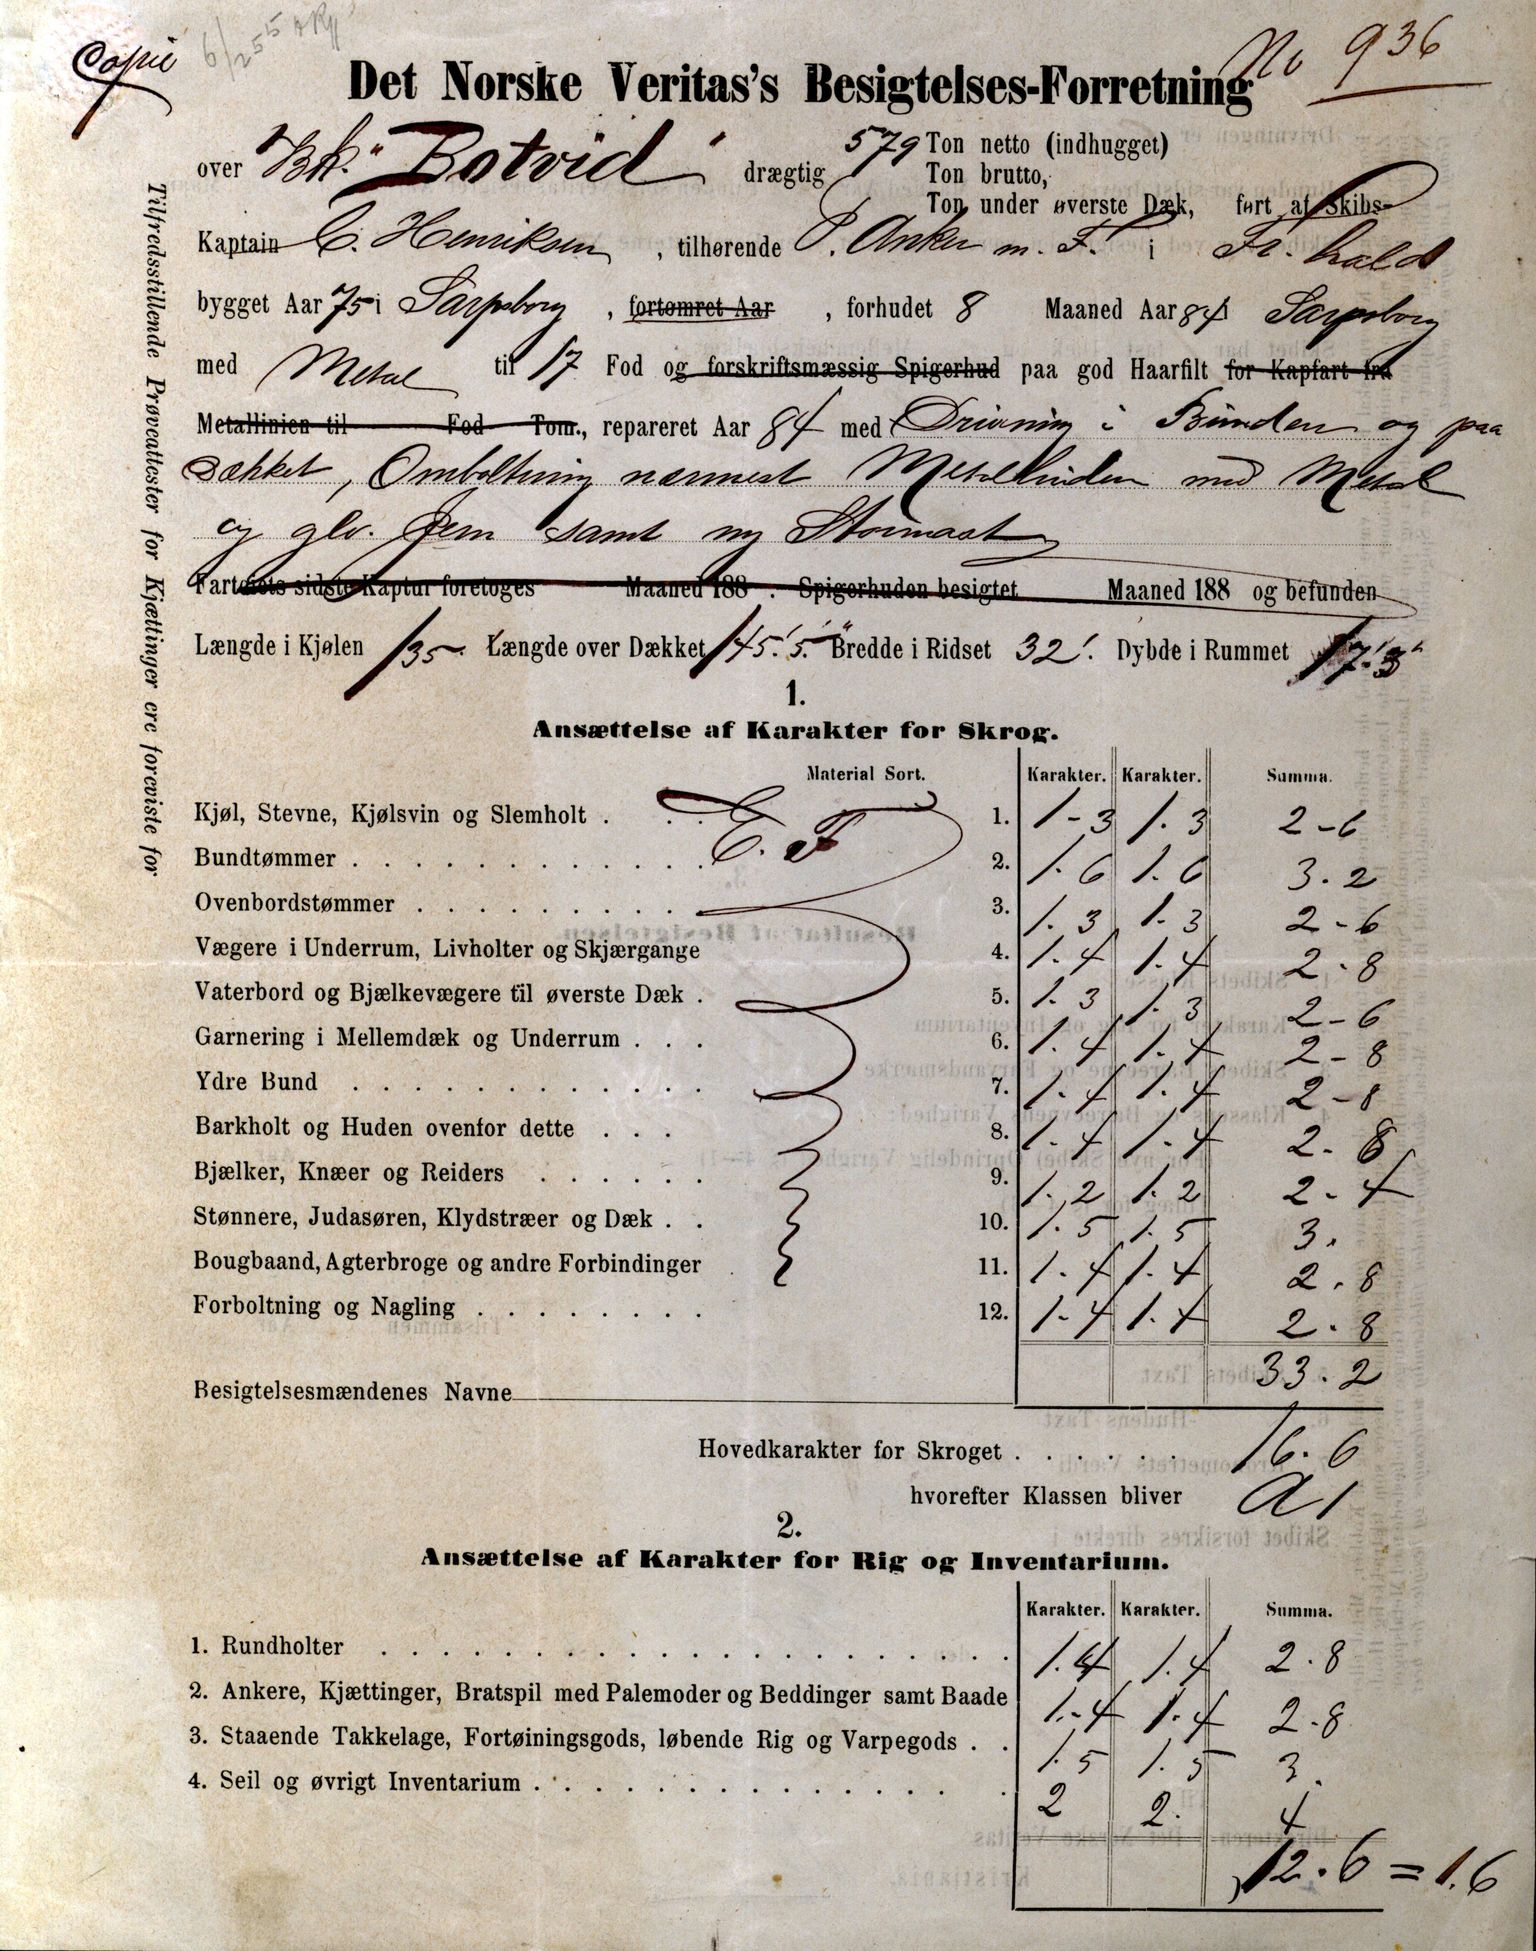 Copie
No 936
Det Norske Veritas's Besigtelses-Forretning
over Bk. "Botvid" drægtig 579 Ton netto (indhugget)
Ton brutto,
Ton under øverste Dæk, ført af Skibs-
Kaptain C. Henriksen, tilhørende P. Anker m. F. i Fr.hald
bygget Aar 75 i Sarpsborg, fortømret Aar , forhudet 8 Maaned Aar 84 i Sarpsborg
med Metal til 17 Fod og forskriftsmæssig Spigerhud paa god Haarfilt for Kapfart fra
Metallinien til Fod Tom., repareret Aar 84 med Drivning i Bunden og paa
Dækket, Omboltning nærmest Metalhuden med Metal
og glv. Jern samt ny Stormast
Fartøiets sidste Kaptur foretoges Maaned 188 . Spigerhuden besigtet Maaned 188 og befunden
Længde i Kjølen 135 Længde over Dækket 145'.5." Bredde i Ridset 32'. Dybde i Rummet 17'.3"
Tilfredsstillende Prøveattester for Kjættinger ere foreviste for
1.
Ansættelse af Karakter for Skrog.
Material Sort. Karakter. Karakter. Summa.
Kjøl, Stevne, Kjølsvin og Slemholt . . . E. F 1. 1-3 1.3 2-6
Bundtømmer . . . . . . . . . 2. 1.6 1.6 3.2
Ovenbordstømmer . . . . . . . . 3. 1.3 1.3 2-6
Vægere i Underrum, Livholter og Skjærgange 4. 1.4 1.4 2.8
Vaterbord og Bjælkevægere til øverste Dæk . 5. 1.3 1.3 2-6
Garnering i Mellemdæk og Underrum . . . 6. 1.4 1.4 2-8
Ydre Bund . . . . . . . . . 7. 1.4 1.4 2-8
Barkholt og Huden ovenfor dette . . . 8. 1.4 1.4 2.8
Bjælker, Knæer og Reiders . . . . . 9. 1.2 1.2 2-4
Stønnere, Judasøren, Klydstræer og Dæk . . 10. 1.5 1.5 3.
Bougbaand, Agterbroge og andre Forbindinger 11. 1.4 1.4 2.8
Forboltning og Nagling . . . . . . 12. 1.4 1.4 2.8
33.2
Besigtelsesmændenes Navne
Hovedkarakter for Skroget . . . . . . 16.6
hvorefter Klassen bliver A1
2.
Ansættelse af Karakter for Rig og Inventarium.
Karakter. Karakter. Summa.
1. Rundholter . . . . . . . . . . . . . . . . 1.4 1.4 2.8
2. Ankere, Kjættinger, Bratspil med Palemoder og Beddinger samt Baade 1.4 1.4 2.8
3. Staaende Takkelage, Fortøiningsgods, løbende Rig og Varpegods . . 1.5 1.5 3.
4. Seil og øvrigt Inventarium . . . . . . . . . . . . 2 2. 4
12.6 = 1.6